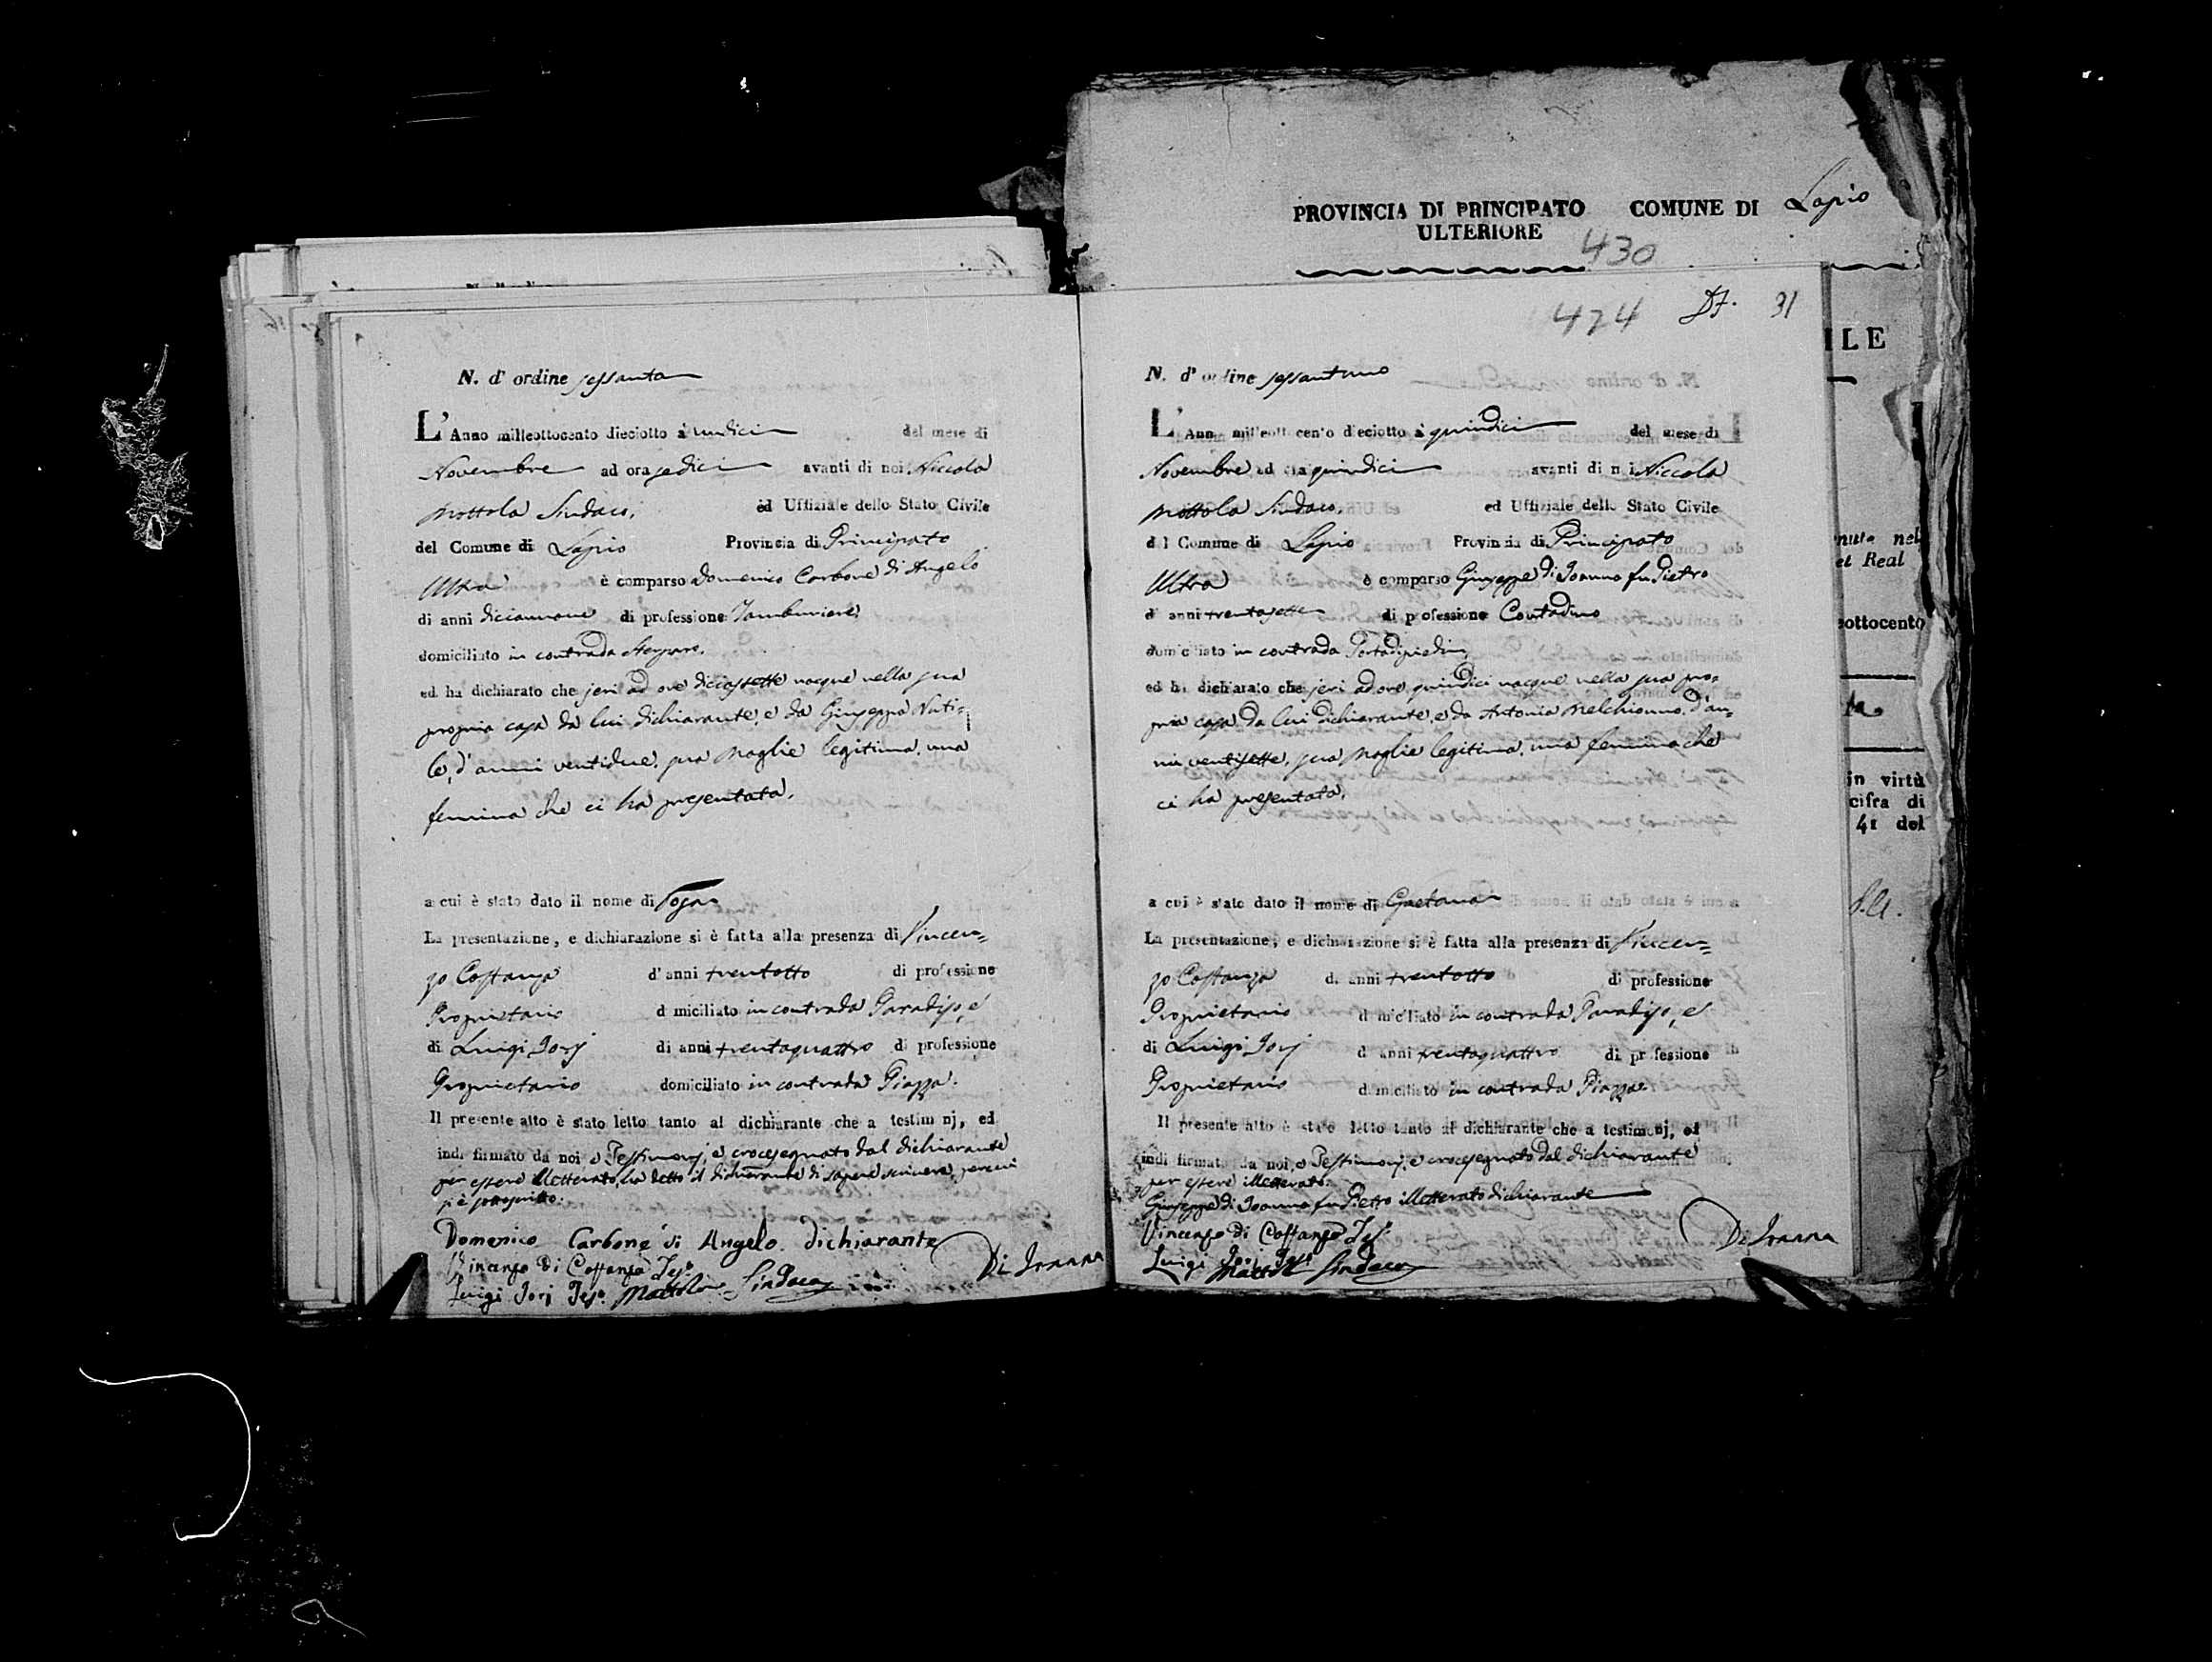 PROVINCIA DI PRINCIPATO COMUNE DI Lapio
ULTERIORE
430
N. d' ordine sessanta
L' Anno milleottocento dieciotto a' undici del mese di
Novembre ad ora sedici avanti di noi Niccola
Mottola Sindaco, ed Uffiziale dello Stato Civile
del Comune di Lapio Provincia di Principato
Ultra è comparso Domenico Carbone di Angelo
di anni diciannove di professione Tamburriere
domiciliato in contrada
ed ha dichiarato che jeri ad ore diciassette nacque nella sua
propria casa da lui dichiarante, e da Giuseppa Nuti=
le, d' anni ventidue, sua moglie legitima, una
femina che ci ha presentata.
a cui è stato dato il nome di Rosa
La presentazione, e dichiarazione si è fatta alla presenza di Vincen=
zo Costanza d' anni trentotto di professione
Proprietario d miciliato in contrada Paradiso, e
di Luigi Iorj di anni trentaquattro di professione
Proprietario domiciliato in contrada Piazza.
Il presente atto è stato letto tanto al dichiarante che a testim nj, ed
indi firmato da noi e Testimonj, e crocesegnato dal dichiarante
per essere illetterato, ha detto il dichiarante di sapere scrivere, perciò
si è sottoscritto.
Domenico Carbone di Angelo dichiarante
Vincenzo Di Costanza Tes.
Luigi Iorj Tes. Mottola Sindaco
Di Ioanna
474 31
N. d' or ine sessantuno
L' Ann milleott cento dieciotto a' quindici del mese di
Novembre ad ora quindici avanti di n i Niccola
Mottola Sindaco, ed Uffiziale dello Stato Civile
d l Comune di Lapio Provincia di Principato
Ultra è comparso Giuseppe di Ioanna fu Pietro
d anni trentasette di professione Contadino
domiciliato in contrada
ed ha dichiarato che jeri ad ore quindici nacque nella sua pro=
pria casa da lui dichiarante, e da Antonia Melchionno, d' an=
ni ventisette, sua moglie legitima, una femina che
ci ha presentata.
a cui è stato dato il nome di Gaetana
La presentazione, e dichiarazione si è fatta alla presenza di Vincen=
zo Costanza d. anni trentotto di professione
Proprietario d miciliato in contrada Paradiso, e
di Luigi Iorj d anni trentaquattro di pr fessione
Proprietario domiciliato in contrada Piazza
Il presente atto è stato letto tanto al dichiarante che a testimonj, ed
indi firmato da noi, e Testimonj, e crocesegnato dal dichiarante
per essere illetterato.
Giuseppe di Ioanna fu Pietro illetterato dichiarante
Vincenzo Di Costanza Tes.
Luigi Iorj Tes.
Mottola Sindaco
Di Ioanna
ILE
nuta nel
el Real
ottocento
in virtù
cifra di
41 del